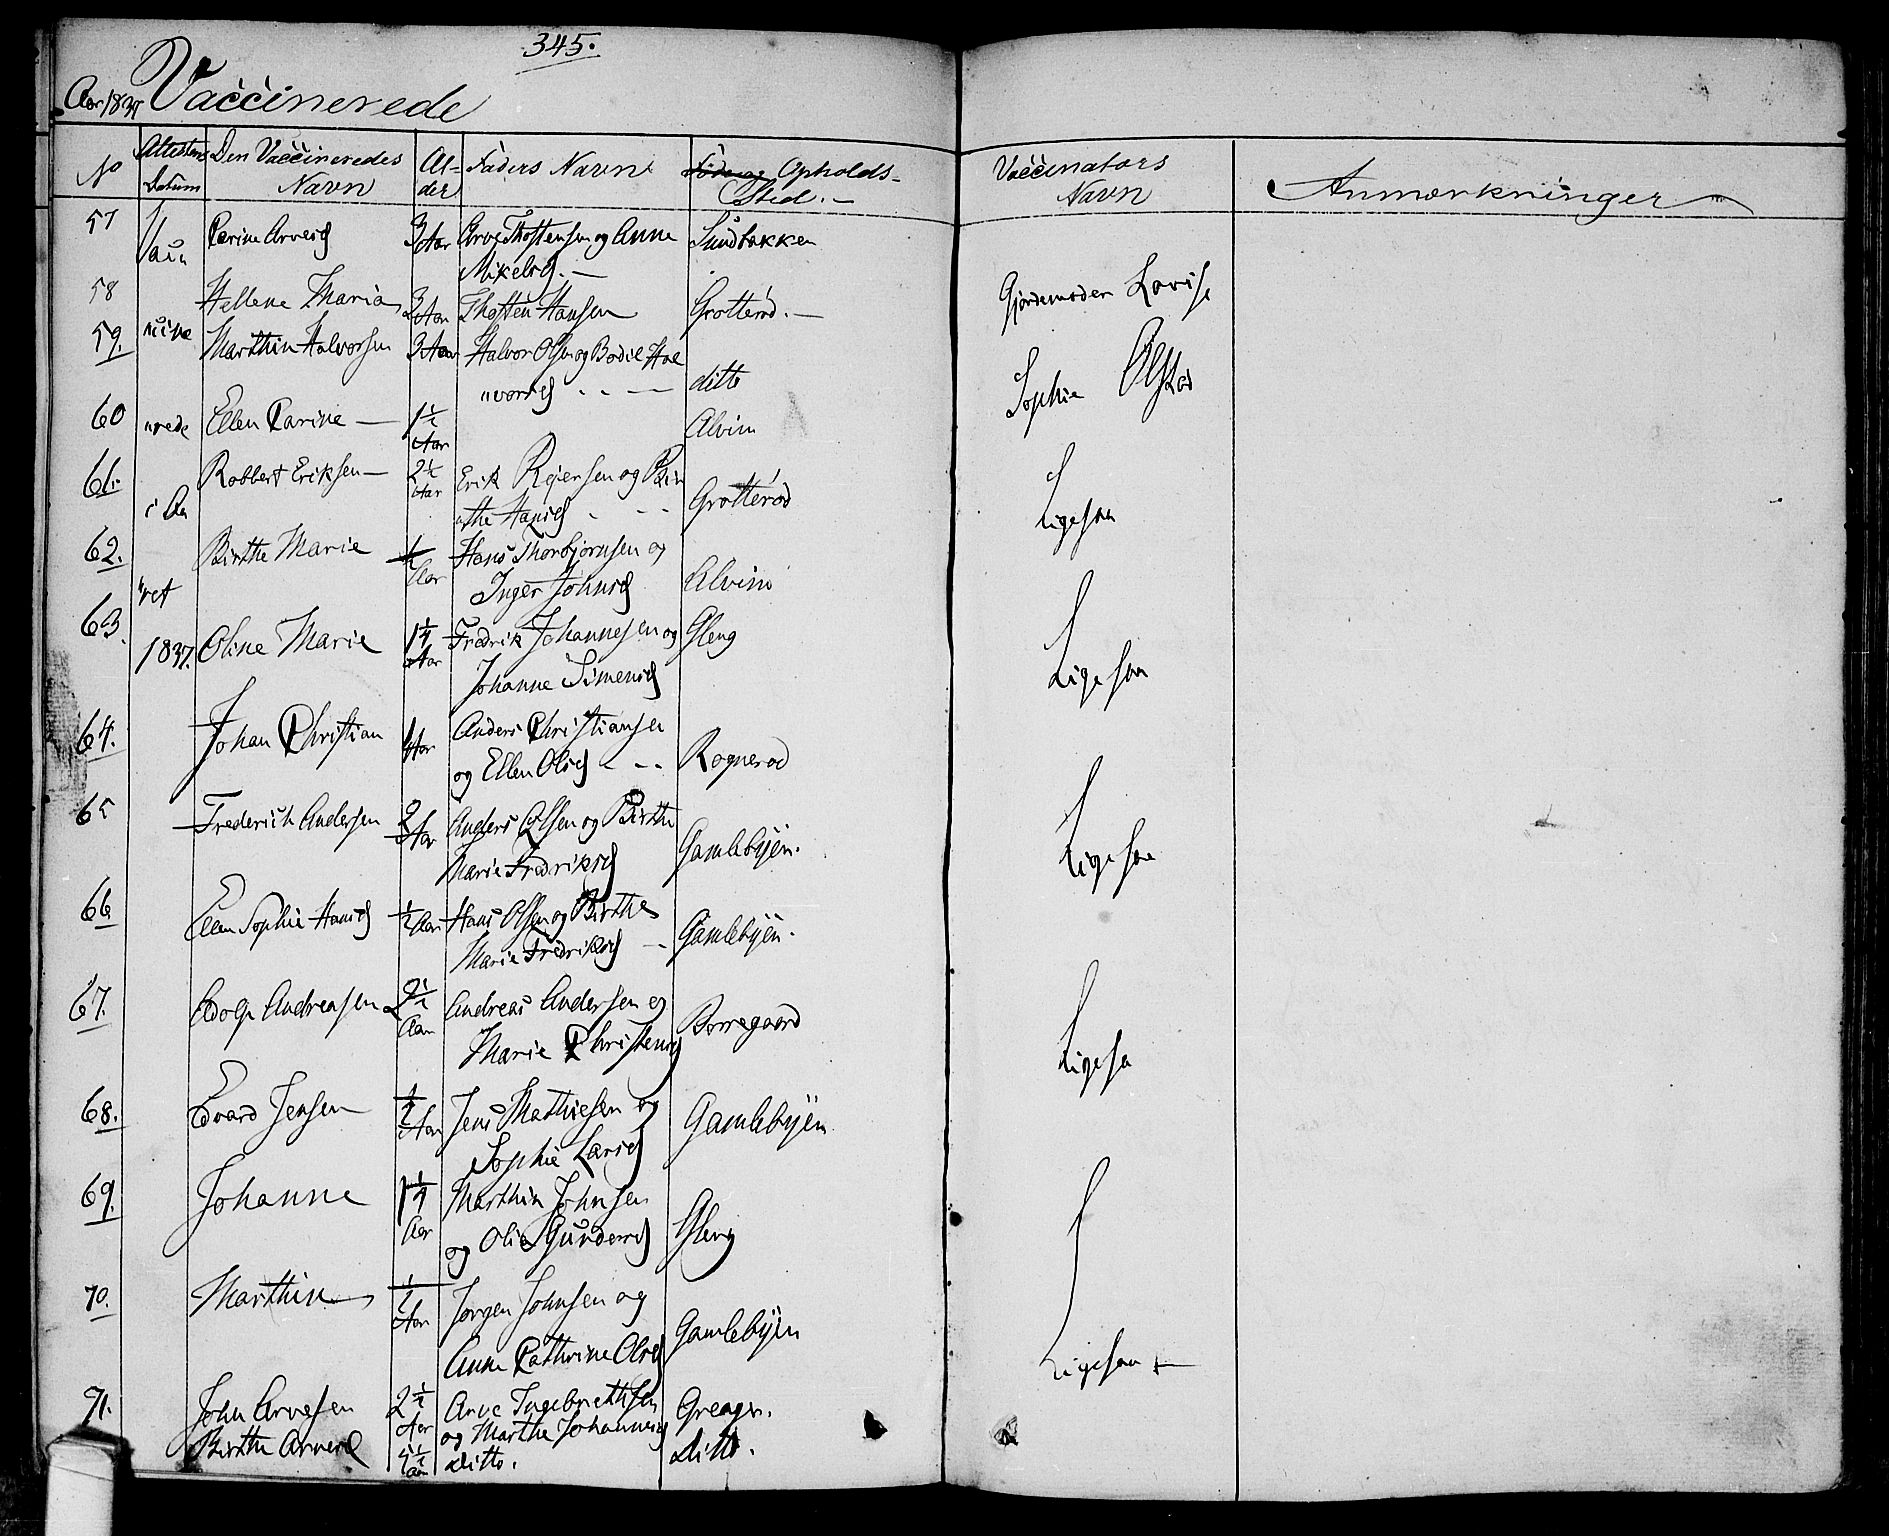 345.
Aar 1837 Vaccinerede
No Attestens Datum Den Vaccineredes Navn Alder Faders Navn Opholds-Sted. Vaccinators Navn Anmærkninger
57 Vac Carine Arvesd 3 Aar Arve Thostensen og Anne Sundbakken
Mikelsd. —
58 Hellene Maria 3 Aar Thosten Hansen Grotterød. — Gjordemoder Lovise
59. cine Marthin Halvorsen 3 Aar Halvor Olsen og Bodil Hal
vorsd ditto Sophie
60 rede Ellen Carine — 1½ Aar Alvim
61. i Aa Robbert Eriksen — 2½ Aar Erik Rejersen og Bir
the Hansd Grotterød Ligesaa
62. ret Birthe Marie ½ Aar Hans Thorbjørnsen og
Inger Johnsd Alvim
63. 1837. Oline Marie 1¼ Aar Fredrik Johannesen og Gleng
Johanne Simensd Ligesaa
64. Johan Christian Aar Anders Christiansen
og Ellen Olsd Rognerød
65 Frederich Andersen 2 Aar Anders Olsen og Birthe
Marie Fredriksd Gamlebyen. Ligesaa
66 Ellen Sophie Hansd ½ Aar Hans Olsen og Birthe
Marie Fredriksd — Gamlebyen.
67. Adolp Andreasen 2½ Aar Andreas Andersen og
Marie Christensd Borregaard Ligesa
68. Edvard Jensen ½ Aar Jens Mathiesen og Gamlebyen
Sophie Larsd
69. Johanne 1¼ Aar Marthin Johnsen
og Olia Gundersd Gleng
70. Marthin ½ Aar Jørgen Johnsen og
Anne Cathrine Olsd Gamlebyen Ligesaa
71. John Arvesen 2½ Aar Arve Ingebrethsen Greager.
og Marthe Johannesd
Birthe Arvesd Aar ditto. ditto.